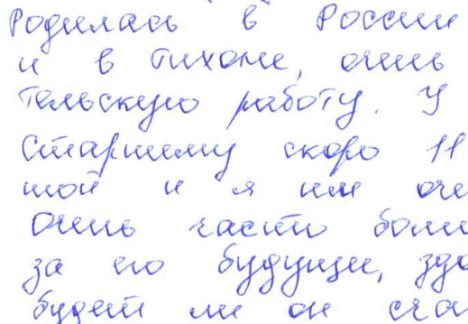 Родилась в России
и в тихоне, очень
тельскую работу. У
Старшему скоро 11
шой и я им оче
Очень часто боли
за его будущее, здо
будет ли он сча